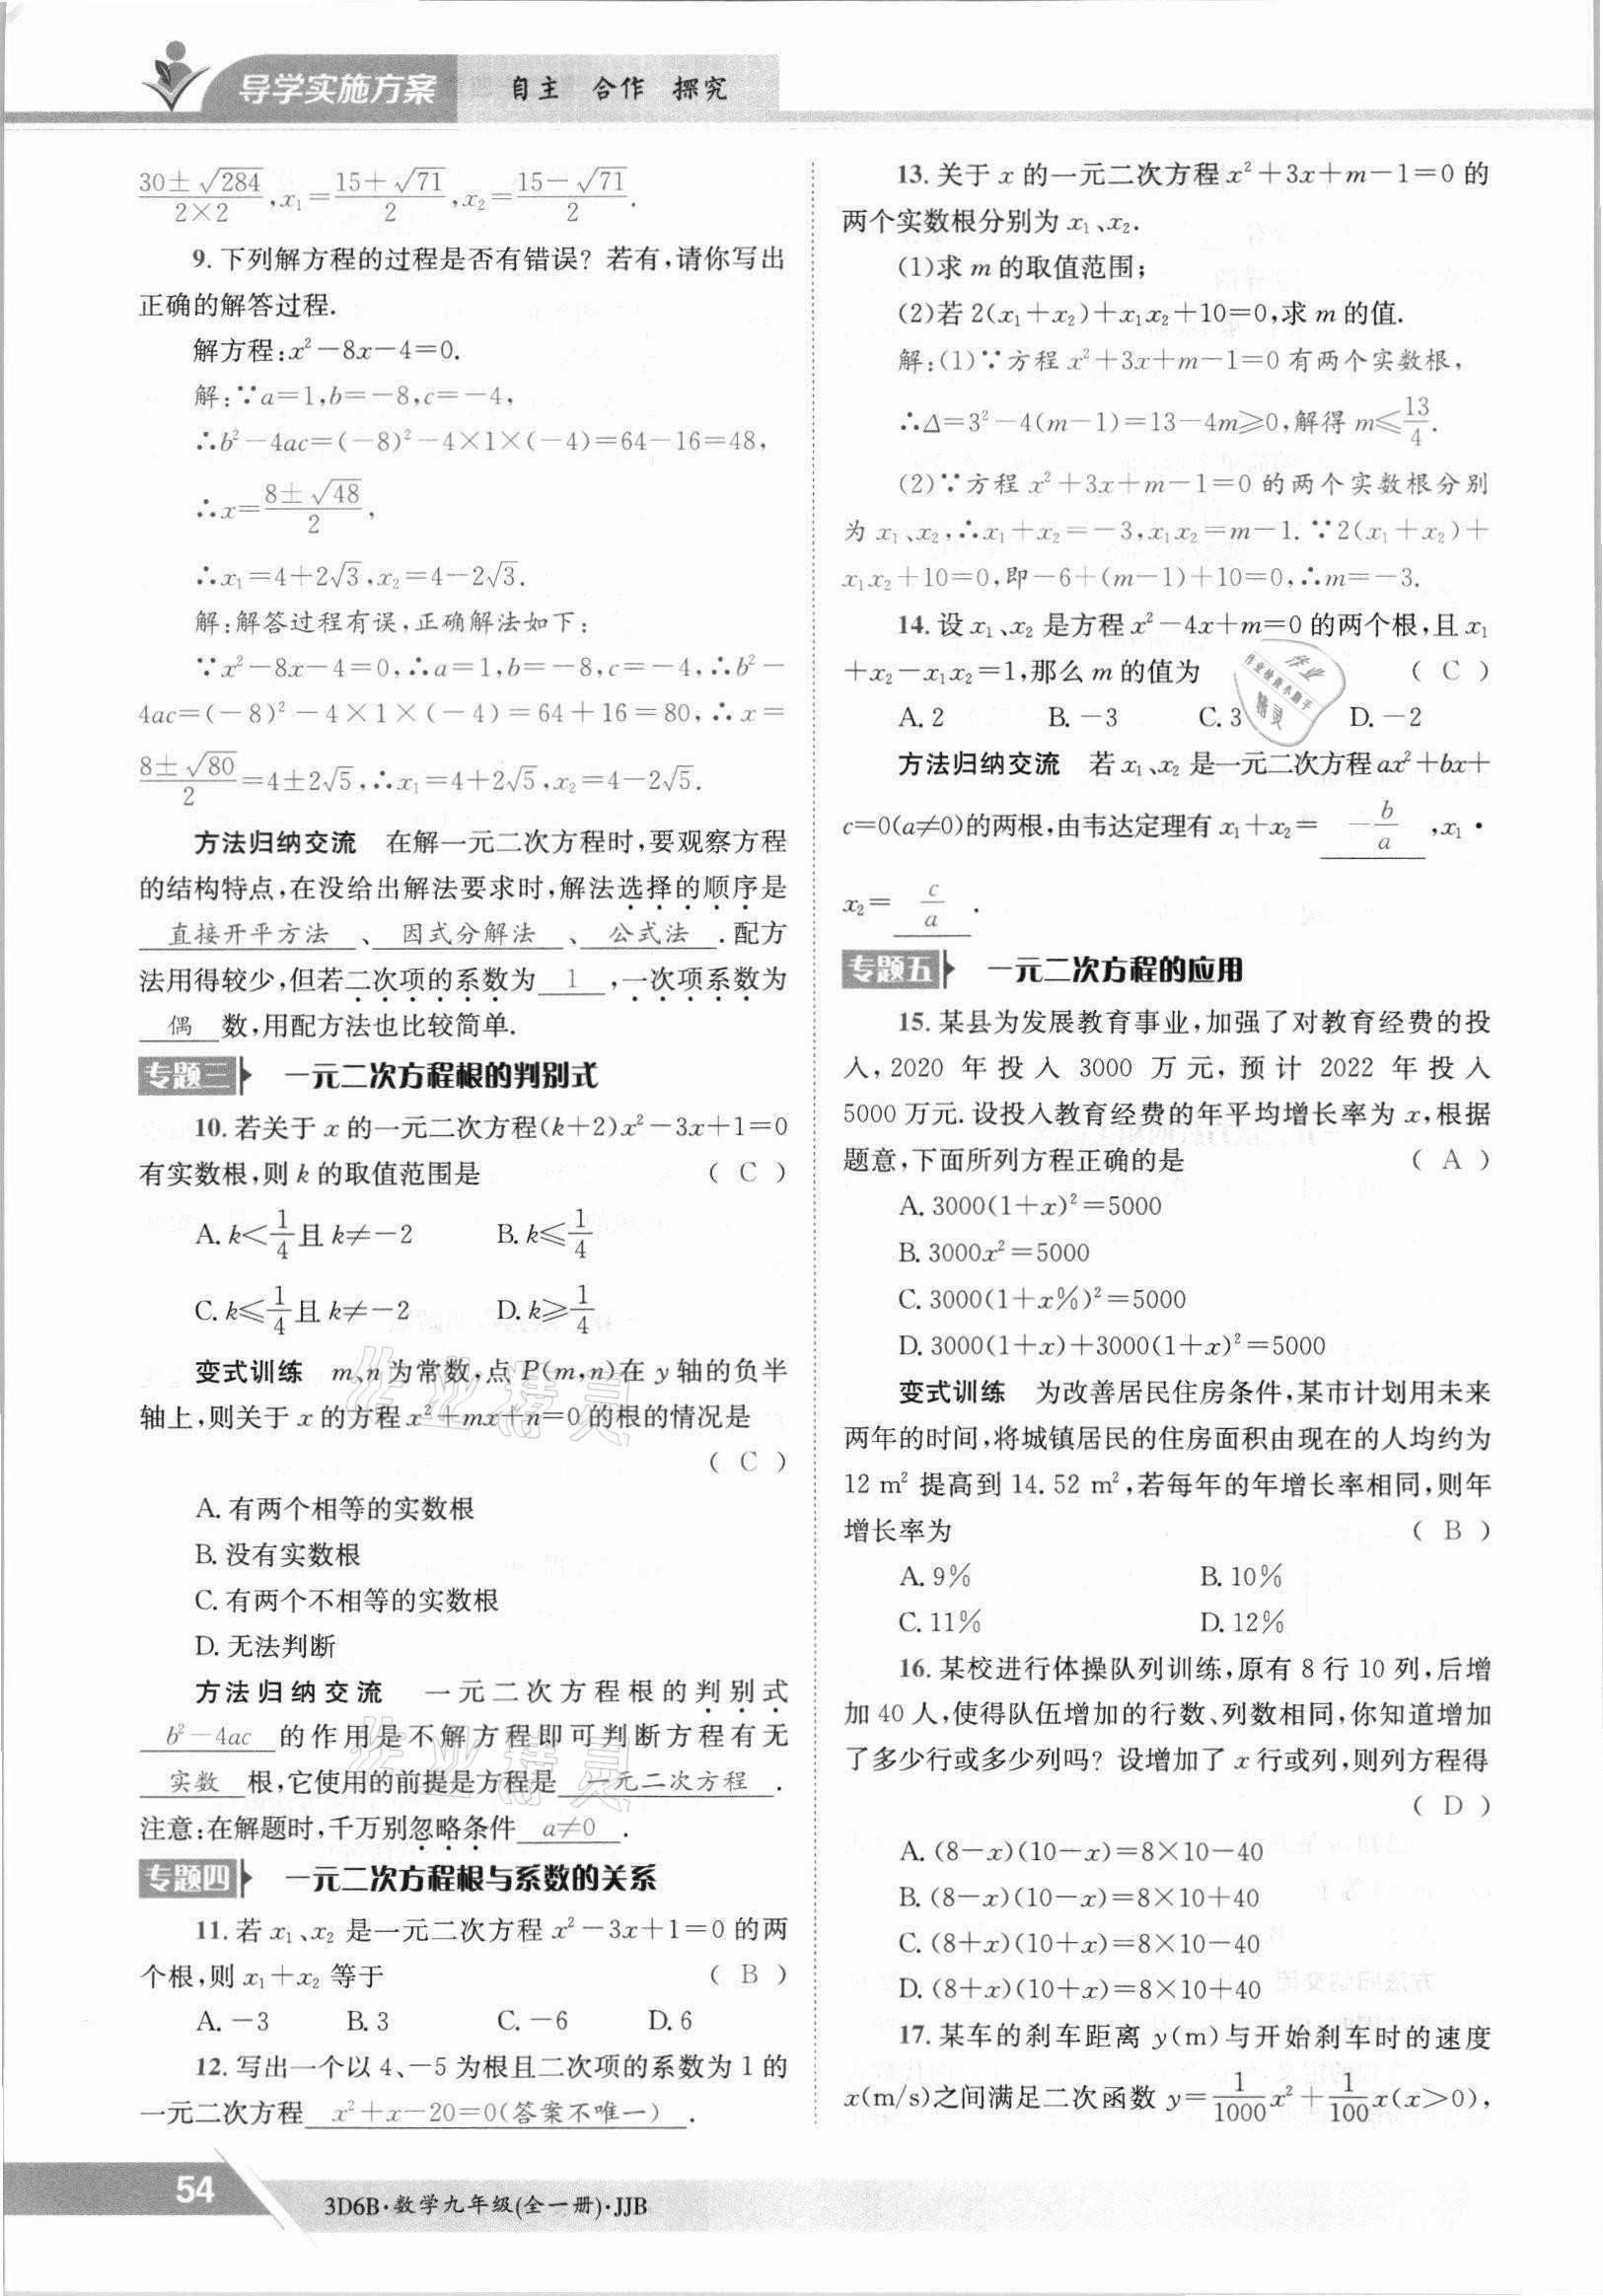 导学实施方案 自主 合作 探究
30±√284/2×2,x₁=15+√71/2,x₂=15-√71/2.
9.下列解方程的过程是否有错误?若有,请你写出
正确的解答过程.
解方程:x²-8x-4=0.
解:∵a=1,b=-8,c=-4,
∴b²-4ac=(-8)²-4×1×(-4)=64-16=48,
∴x=8±√48/2,
∴x₁=4+2√3,x₂=4-2√3.
解:解答过程有误,正确解法如下:
∵x²-8x-4=0,∴a=1,b=-8,c=-4,∴b²-
4ac=(-8)²-4×1×(-4)=64+16=80,∴x=
8±√80/2=4±2√5,∴x₁=4+2√5,x₂=4-2√5.
方法归纳交流 在解一元二次方程时,要观察方程
的结构特点,在没给出解法要求时,解法选择的顺序是
直接开平方法、因式分解法、公式法.配方
法用得较少,但若二次项的系数为 1 ,一次项系数为
偶 数,用配方法也比较简单.
专题三 一元二次方程根的判别式
10.若关于x的一元二次方程(k+2)x²-3x+1=0
有实数根,则k的取值范围是 ( C )
A.k<1/4且k≠-2 B.k≤1/4
C.k≤1/4且k≠-2 D.k≥1/4
变式训练 m、n为常数,点P(m,n)在y轴的负半
轴上,则关于x的方程x²+mx+n=0的根的情况是
( C )
A.有两个相等的实数根
B.没有实数根
C.有两个不相等的实数根
D.无法判断
方法归纳交流 一元二次方程根的判别式
b²-4ac 的作用是不解方程即可判断方程有无
实数 根,它使用的前提是方程是 一元二次方程 .
注意:在解题时,千万别忽略条件 a≠0 .
专题四 一元二次方程根与系数的关系
11.若x₁、x₂是一元二次方程x²-3x+1=0的两
个根,则x₁+x₂等于 ( B )
A.-3 B.3 C.-6 D.6
12.写出一个以4、-5为根且二次项的系数为1的
一元二次方程 x²+x-20=0(答案不唯一) .
13.关于x的一元二次方程x²+3x+m-1=0的
两个实数根分别为x₁、x₂.
(1)求m的取值范围;
(2)若2(x₁+x₂)+x₁x₂+10=0,求m的值.
解:(1)∵方程x²+3x+m-1=0有两个实数根,
∴Δ=3²-4(m-1)=13-4m≥0,解得m≤13/4.
(2)∵方程x²+3x+m-1=0的两个实数根分别
为x₁、x₂,∴x₁+x₂=-3,x₁x₂=m-1.∵2(x₁+x₂)+
x₁x₂+10=0,即-6+(m-1)+10=0,∴m=-3.
14.设x₁、x₂是方程x²-4x+m=0的两个根,且x₁
+x₂-x₁x₂=1,那么m的值为 ( C )
A.2 B.-3 C.3 D.-2
方法归纳交流 若x₁、x₂是一元二次方程ax²+bx+
c=0(a≠0)的两根,由韦达定理有x₁+x₂= -b/a ,x₁·
x₂= c/a .
专题五 一元二次方程的应用
15.某县为发展教育事业,加强了对教育经费的投
入,2020年投入3000万元,预计2022年投入
5000万元.设投入教育经费的年平均增长率为x,根据
题意,下面所列方程正确的是 ( A )
A.3000(1+x)²=5000
B.3000x²=5000
C.3000(1+x%)²=5000
D.3000(1+x)+3000(1+x)²=5000
变式训练 为改善居民住房条件,某市计划用未来
两年的时间,将城镇居民的住房面积由现在的人均约为
12 m²提高到14.52 m²,若每年的年增长率相同,则年
增长率为 ( B )
A.9% B.10%
C.11% D.12%
16.某校进行体操队列训练,原有8行10列,后增
加40人,使得队伍增加的行数、列数相同,你知道增加
了多少行或多少列吗?设增加了x行或列,则列方程得
( D )
A.(8-x)(10-x)=8×10-40
B.(8-x)(10-x)=8×10+40
C.(8+x)(10+x)=8×10-40
D.(8+x)(10+x)=8×10+40
17.某车的刹车距离y(m)与开始刹车时的速度
x(m/s)之间满足二次函数y=1/1000x²+1/100x(x>0),
作业
作业检查小助手
精灵
作业精灵
作业精灵
54 3D6B·数学九年级(全一册)·JJB